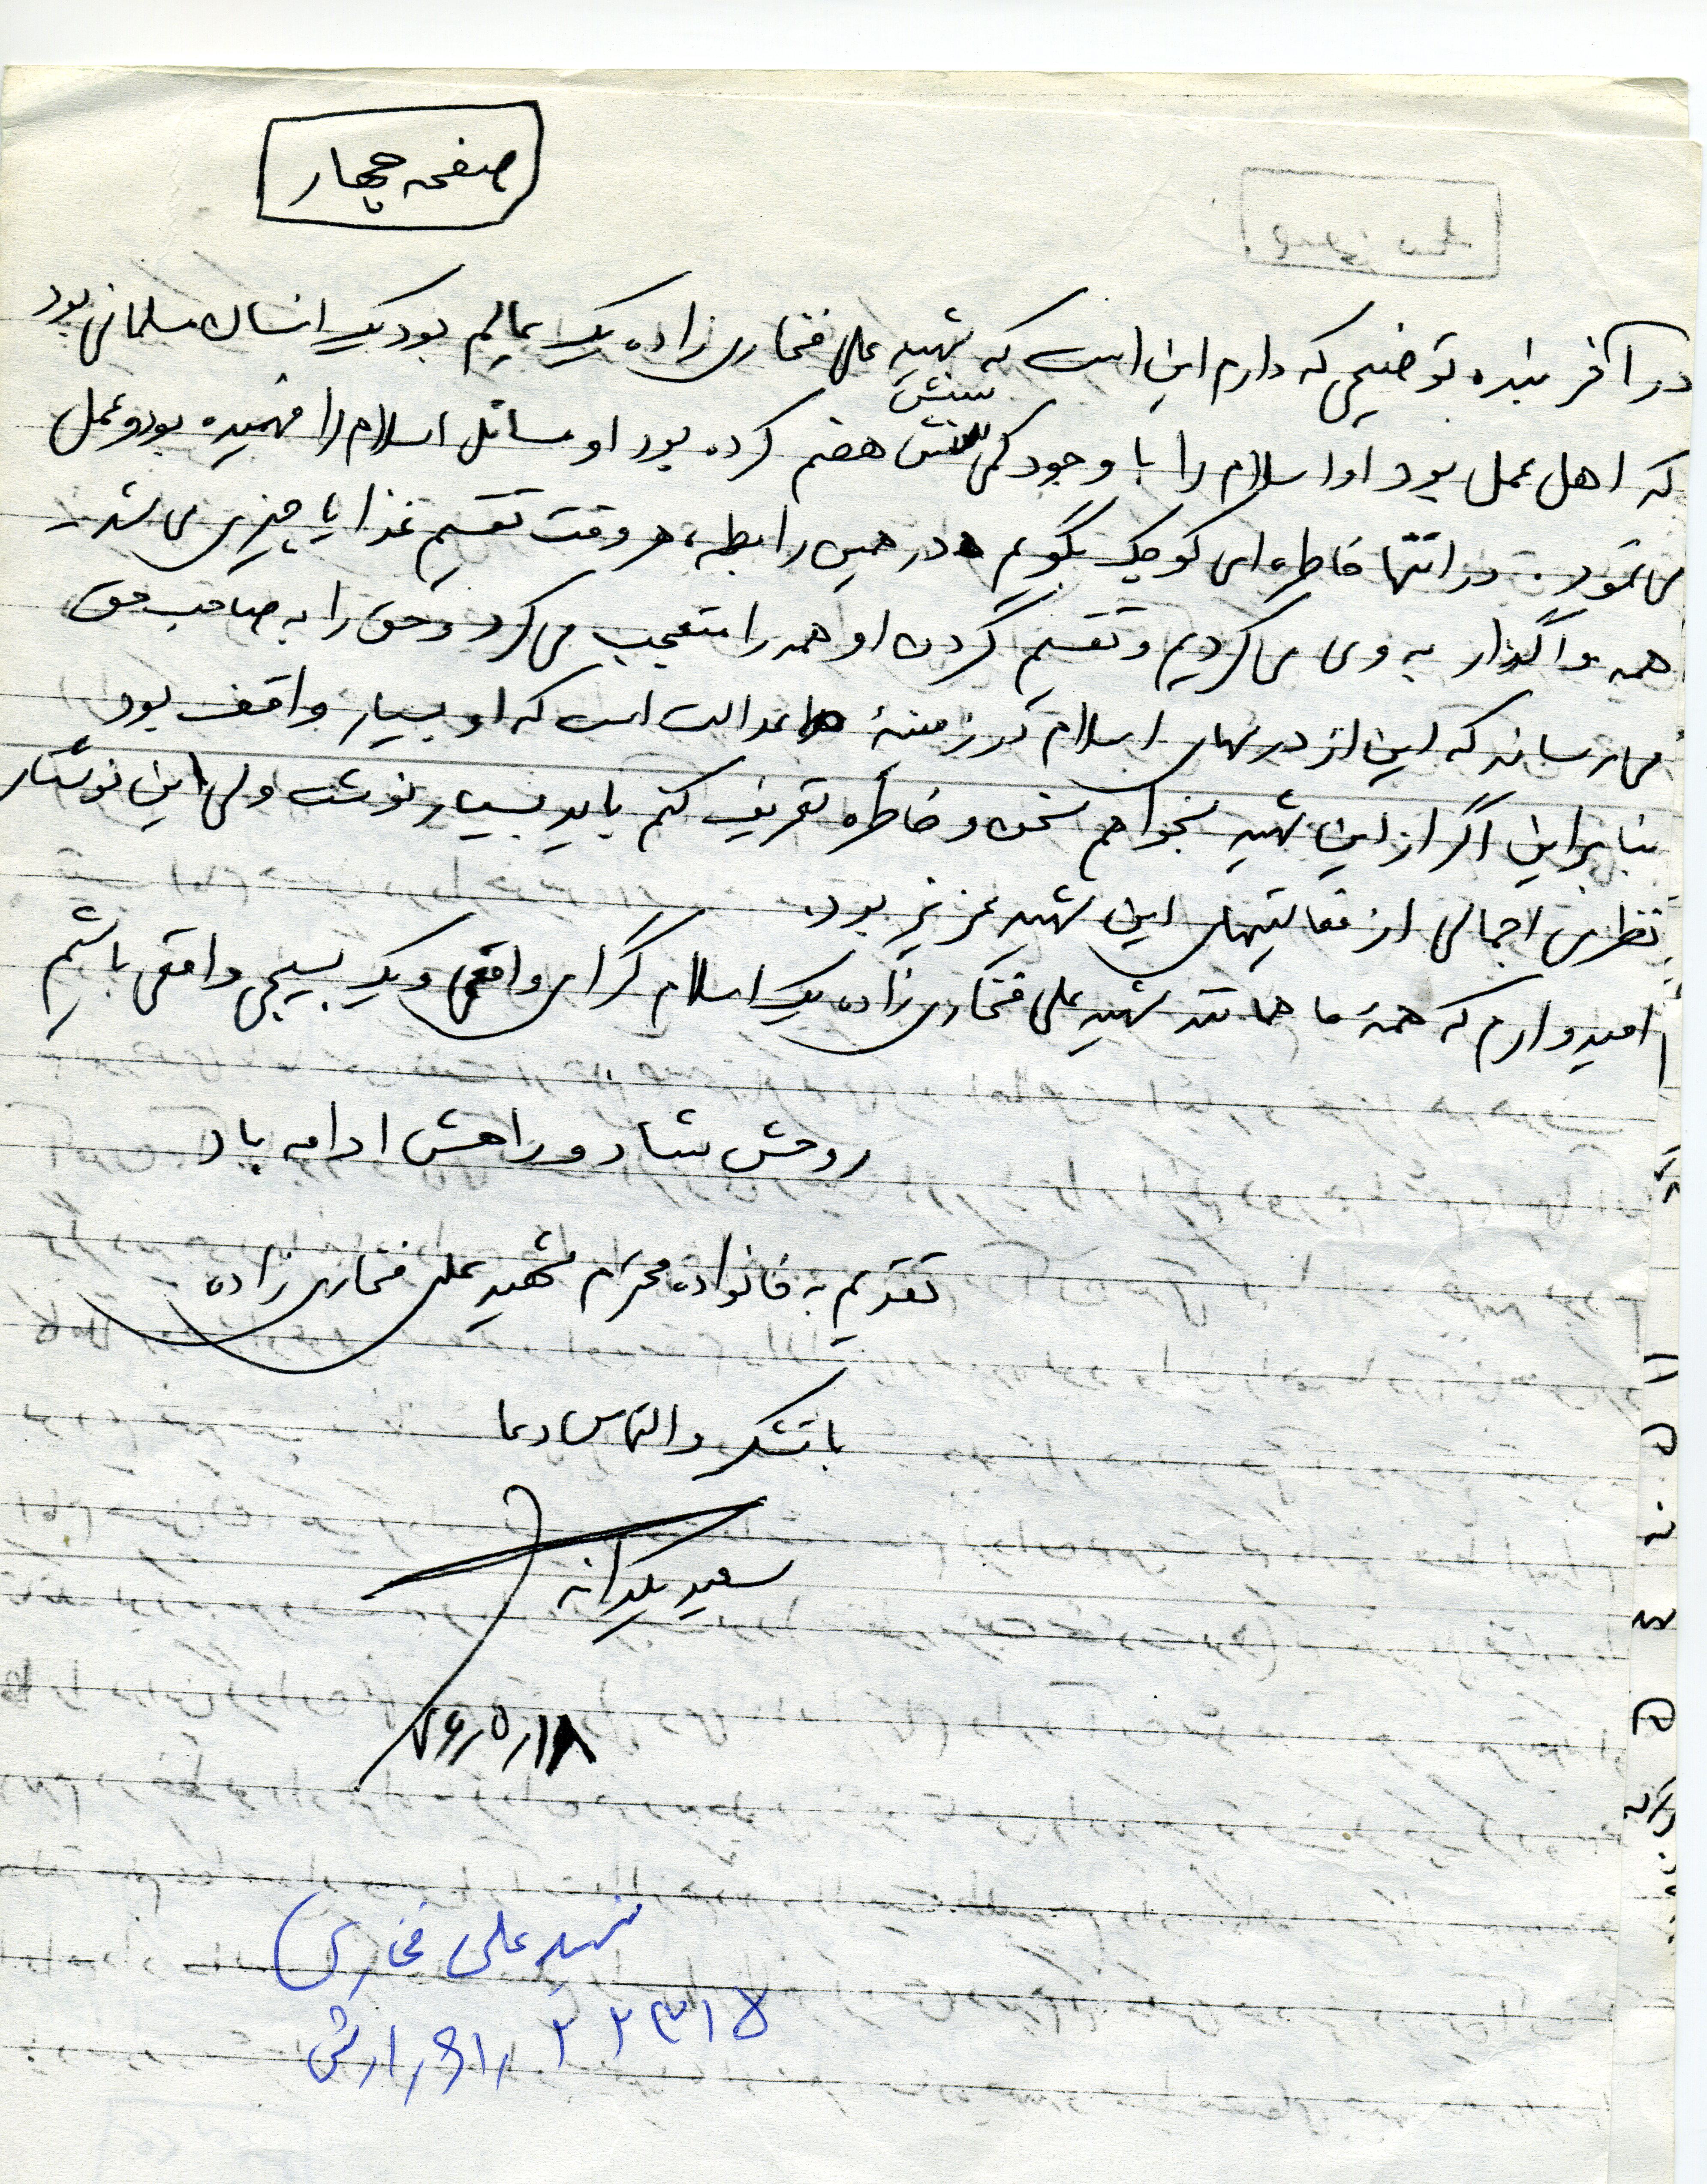 صفحه چهار
در آخر بنده توضیحی که دارم این است که شهید علی فخاری زاده یک عالم بود یک انسان مسلمانی بود
که اهل عمل بود او اسلام را با وجود کمی سنش هضم کرده بود او مسائل اسلام را فهمیده بود و عمل
می نمود. در انتها خاطره ای کوچک بگویم در همین رابطه، هر وقت تقسیم غذا یا چیزی می شد
همه واگذار به وی می کردیم و تقسیم کردن او همه را متعجب می کرد و حق را به صاحب حق
می رساند که این از درسهای اسلام در زمینهٔ عدالت است که او بسیار واقف بود
بنابراین اگر از این شهید بخواهم سخن و خاطره تعریف کنم باید بسیار نوشت ولی این نوشتار
نظری اجمالی از فعالیتهای این شهید عزیز بود.
امیدوارم که همهٔ ما همانند شهید علی فخاری زاده یک اسلام گرای واقعی و یک بسیجی واقعی باشیم
روحش شاد و راهش ادامه باد
تقدیم به خانواده محترم شهید علی فخاری زاده
با تشکر و التماس دعا
سعید یکدانه
۷۶٫۵٫۱۸
شهید علی فخاری